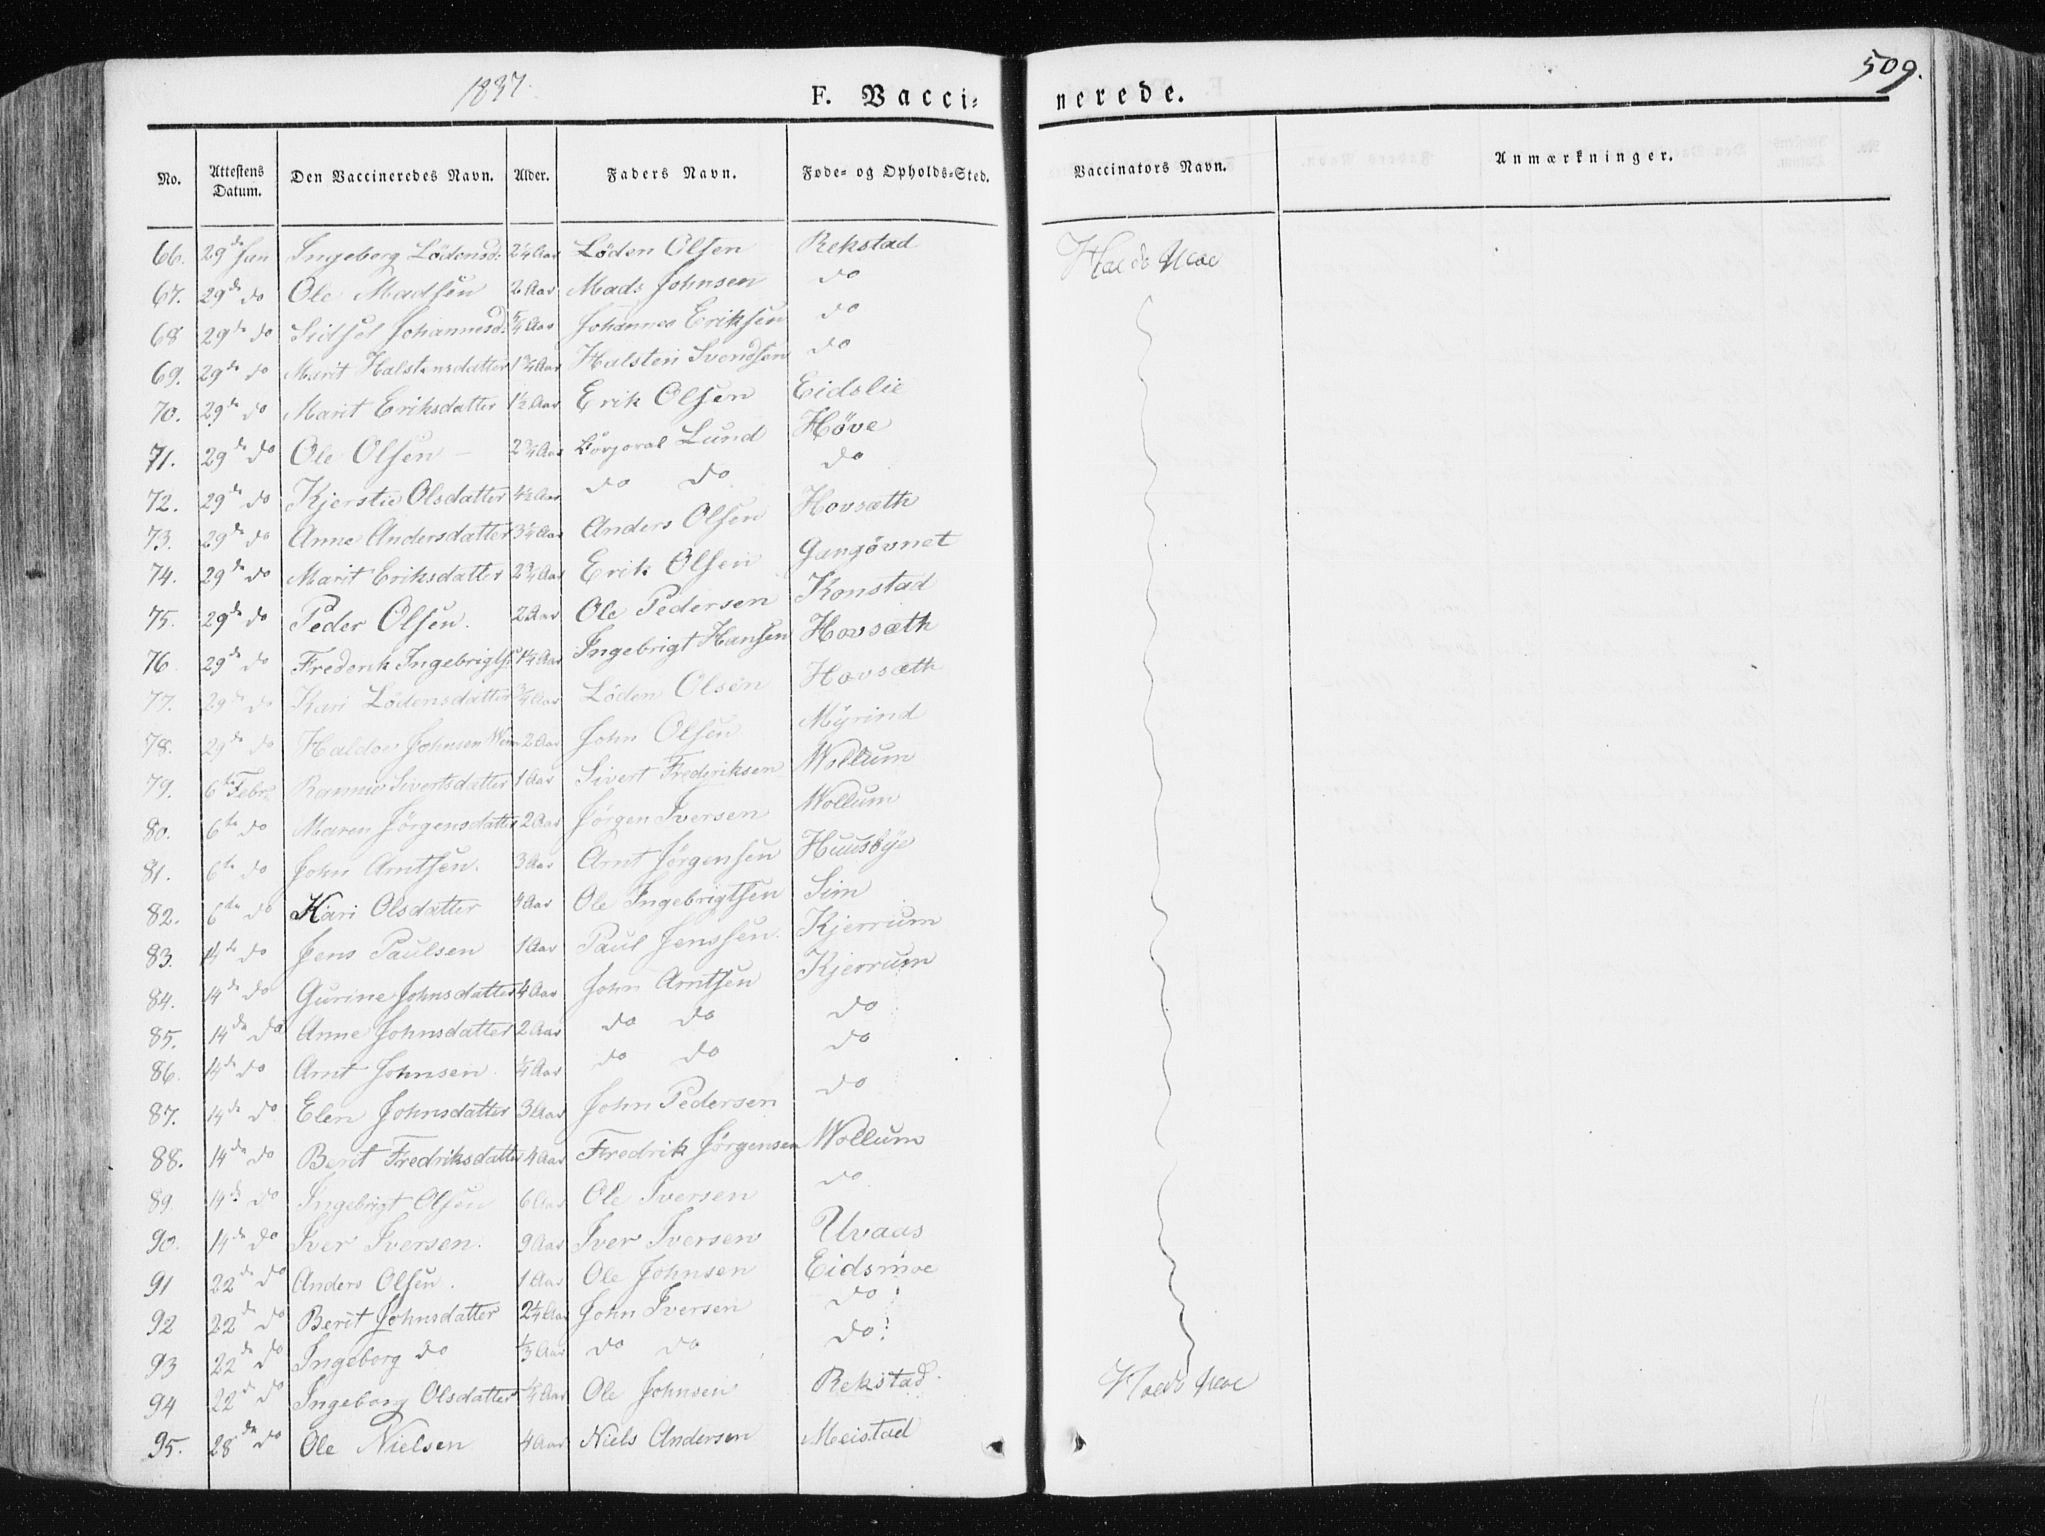 1837.
F. Vacci=
nerede.
509.
No. Attestens Datum. Den Vaccineredes Navn. Alder. Faders Navn. Føde= og Opholds=Sted. Vaccinators Navn. Anmærkninger.
66. 29de Jan Ingeborg Lödensd: 2¼ Aar Löden Olsen Rekstad
67. 29de do Ole Madsen 2 Aar Mads Johnsen do
68 29de do Sidsel Johannesd: 5/4 Aar Johannes Eriksen do
69. 29de do Marit Halstensdatter 1¾ Aar Halsten Svendsen do
70. 29de do Marit Eriksdatter 1½ Aar Erik Olsen Eidslie
71. 29de do Ole Olsen 2¾ Aar Lund Høve
72. 29de do Kjerstie Olsdatter 4½ Aar do do do
73. 29de do Anne Andersdatter 3¼ Aar Anders Olsen Hovsæth
74. 29de do Marit Eriksdatter 2¾ Aar Erik Olsen Gangövnet
75. 29de do Peder Olsen. 2 Aar Ole Pedersen Konstad
76. 29de do Frederik Ingebrigts: 1¼ Aar Ingebrigt Hansen Hovsæth
77. 29de do Kari Lödensdatter ¾ Aar Löden Olsen Hovsæth
78. 29de do Haldor Johnsen 2 Aar John Olsen Myrind
79. 6te Febr. Rannie Sivertsdatter 1 Aar Sivert Frederiksen Wollum
80. 6te do Maren Jörgensdatter 2 Aar Jörgen Iversen Wollum
81. 6te do John Arntsen. 3 Aar Arnt Jörgensen Huusbye
82. 6te do Kari Olsdatter 4 Aar Ole Ingebrigtsen Sim
83. 14de do Jens Paulsen 1 Aar Paul Jenssen. Kjerrum
84. 14de do Gurine Johnsdatter 4 Aar John Arntsen Kjerrum
85. 14de do Anne Johnsdatter 2 Aar do do do
86. 14de do Arnt Johnsen ¼ Aar do do do
87. 14de do Elen Johnsdatter 3 Aar John Pedersen do
88. 14de do Berit Fredriksdatter 4 Aar Fredrik Jörgensen Wollum
89. 14de do Ingebrigt Olsen 6 Aar Ole Iversen do
90. 14de do Iver Iversen. 9 Aar Iver Iversen Uvaas
91 22de do Anders Olsen. 1 Aar Ole Johnsen Eidsmoe
92 22de do Berit Johnsdatter 2¼ Aar John Iversen do
93 22de do Ingeborg do ⅓ Aar do do do
94 22de do Ingeborg Olsdatter ¼ Aar Ole Johnsen Rekstad
95. 28de do Ole Nielsen 4 Aar Niels Andersen Meistad